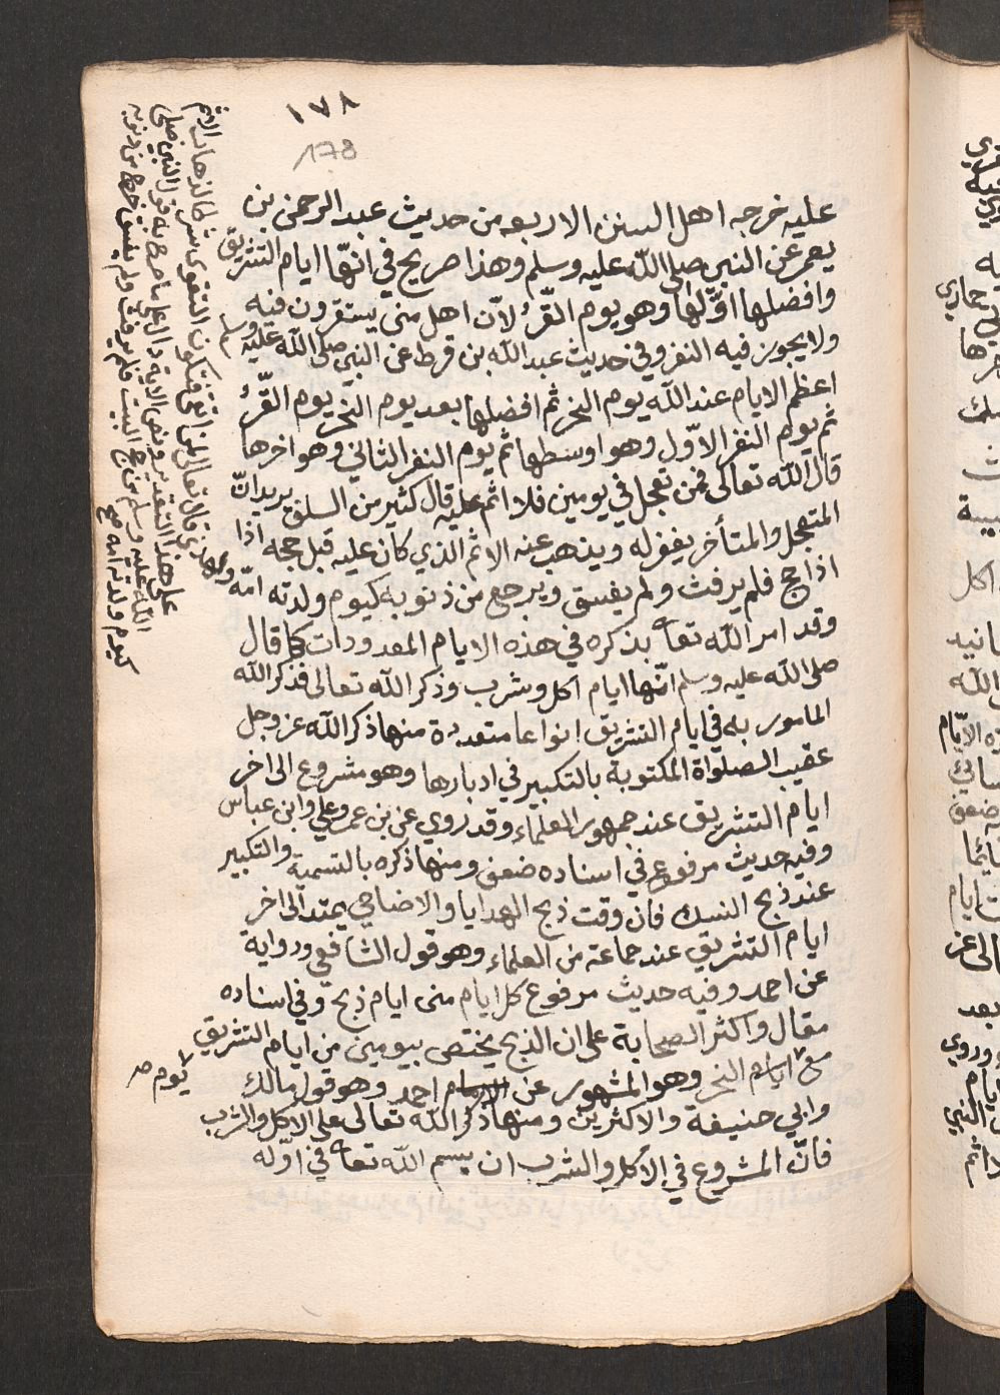 ١٧٨
178
عليه خرجه اهل السنن الاربعه من حديث عبد الرحمن بن
يعمر عن النبي صلى الله عليه وسلم وهذا صريح في انها ايام التشريق
وافضلها اوّلها وهو يوم القّرُ لانّ اهل منى يستقرون فيه
ولا يجوز فيه النفر وفي حديث عبد الله بن قرط عن النبي صلى الله عليه وسلم
اعظم الايام عند الله يوم النحر ثم افضلها بعد يوم النحر يوم القّرُ
ثم يوم النفر الاوّل وهو اوسطها ثم يوم النفر الثاني وهو اخرها
قال الله تعالى فمن تعجل في يومين فلا اثم عليه قال كثير من السلف يريد انّ
المتعجل والمتأخر يغفر له ويذهب عنه الاثم الذي كان عليه قبل حجه اذا
اذا حج فلم يرفث ولم يفسق ويرجع من ذنوبه كيوم ولدته امّه
وقد امر الله تعا بذكره في هذه الايام المعدودات كما قال
صلى الله عليه وسلم انّها ايام اكل وشرب وذكر الله تعالى فذكر الله
المامور به في ايام التشريق انواعا متعددة منها ذكر الله عز وجل
عقيب الصلواة المكتوبة بالتكبير في ادبارها وهو مشروع الى اخر
ايام التشريق عند جمهور العلماء وقد روي عن بن عمر وعلي وابن عباس
وفيه حديث مرفوع في اسناده ضعف ومنها ذكره بالتسمية والتكبير
عند ذبح النسك فان وقت ذبح الهدايا والاضاحي يمتد الى اخر
ايام التشريق عند جماعة من العلماء وهو قول الشافعي ورواية
عن احمد وفيه حديث مرفوع كل ايام منى ايام ذبح وفي اسناده
مقال واكثر الصحابة على ان الذبح يختص بيومين من ايام التشريق
مع ايام النحر وهو المشهور عن الامام احمد وهو قول مالك
يوم صح
وابي حنيفة والاكثرين ومنها ذكر الله تعالى على الاكل والشرب
فانّ المشروع في الاكل والشرب ان يسم الله تعا في اوّله
ولهذا قال تعالى لمن اتقى فتكون التقوى شرطا لذهاب الاثم
على هذا التقدير وتصير الاية دالة على ما صرح به قول النبي صلى
الله عليه وسلم من حج البيت فلم يرفث ولم يفسق خرج من ذنوبه
كيوم ولدته امه صح